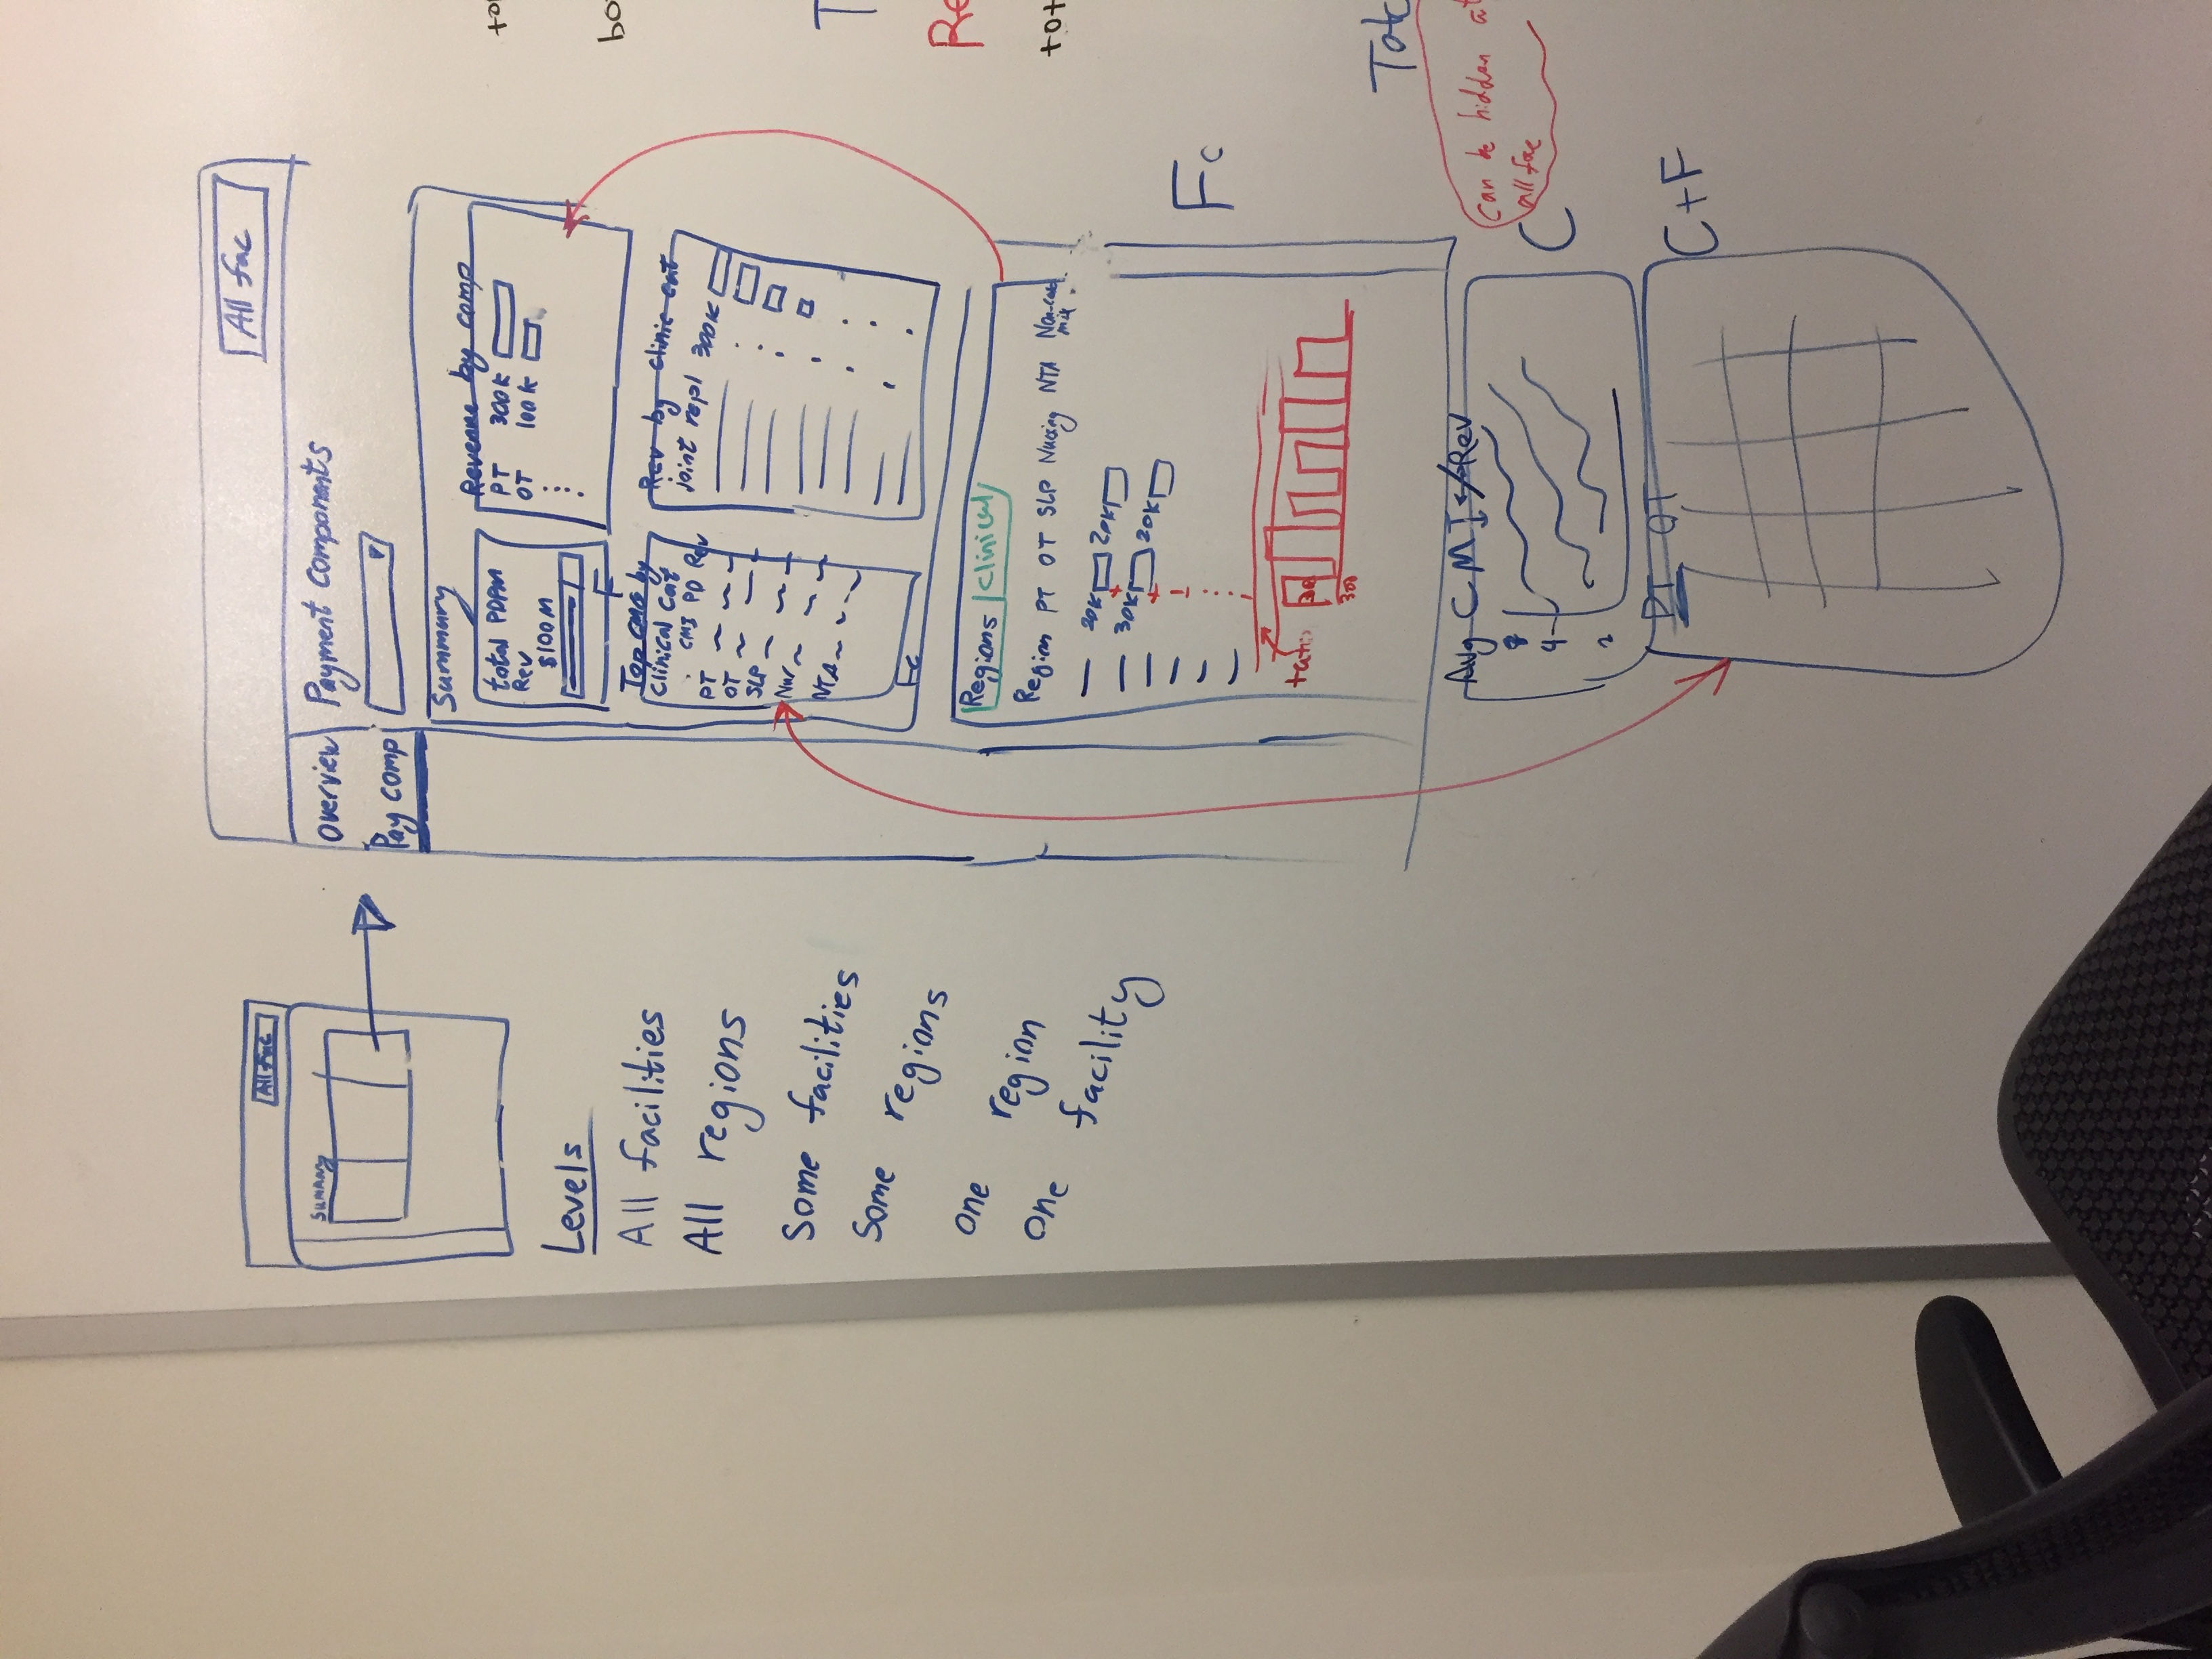 All fac
Summary
Levels
All facilities
All regions
Some facilities
Some regions
one region
One facility
All fac
Overview
Pay comp
Payment Components
Summary
total PDPM
Rev
$100M
F
Revenue by comp
PT 300K
OT 100K
Top CMG by
Clinical Cat
CMI PD Rev
PT
OT
SLP
Nur
NTA
Fc
Rev by clinic cat
joint repl 300K
Regions Clinical
Region PT OT SLP Nursing NTA Non-case mix
20K 20K
30K 20K
300
Fc
Avg CMI Rev
4
2
C
can be hidden at
all fac
PT OT
C+F